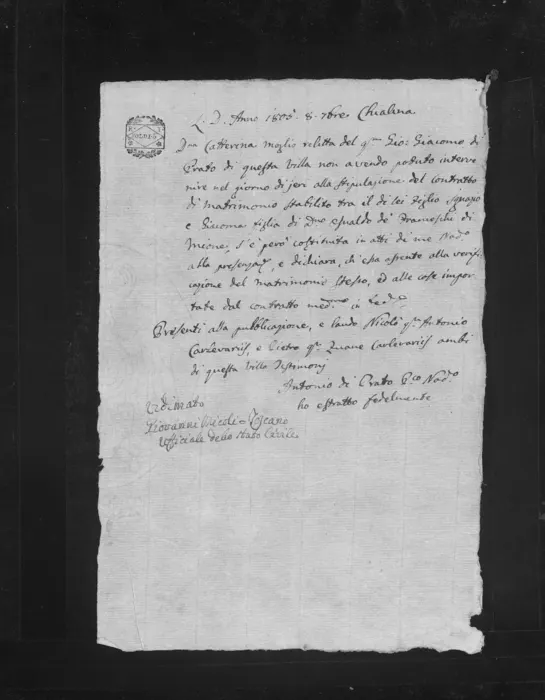 L. D. Anno 1805. 8. 7bre Chialina
Dna Catterina moglie relitta del qm Gio: Giacomo di
Prato di questa villa non avendo potuto interve
nire nel giorno di jeri alla stipulazione del contratto
di matrimonio stabilito tra il di lei figlio Ignazio
e Giacoma figlia di Dno Osualdo de
Mione, s'è però costituita in atti di me Nodo
alla, e dichiara, di esa asente alla verifi
cazione del matrimonio steso, ed alle cose impor
tate dal contratto medmo in
Presenti alla pubblicazione, e laudo Nicolò qm Antonio
Carlevariis, e Pietro qm Zuane Carlevariis ambi
di questa Villa Testimonj
Antonio di Prato Nodo
ho estratto fedelmente
Vidimato
Giovanni Micoli-Toscano
Ufficiale dello Stato Civile